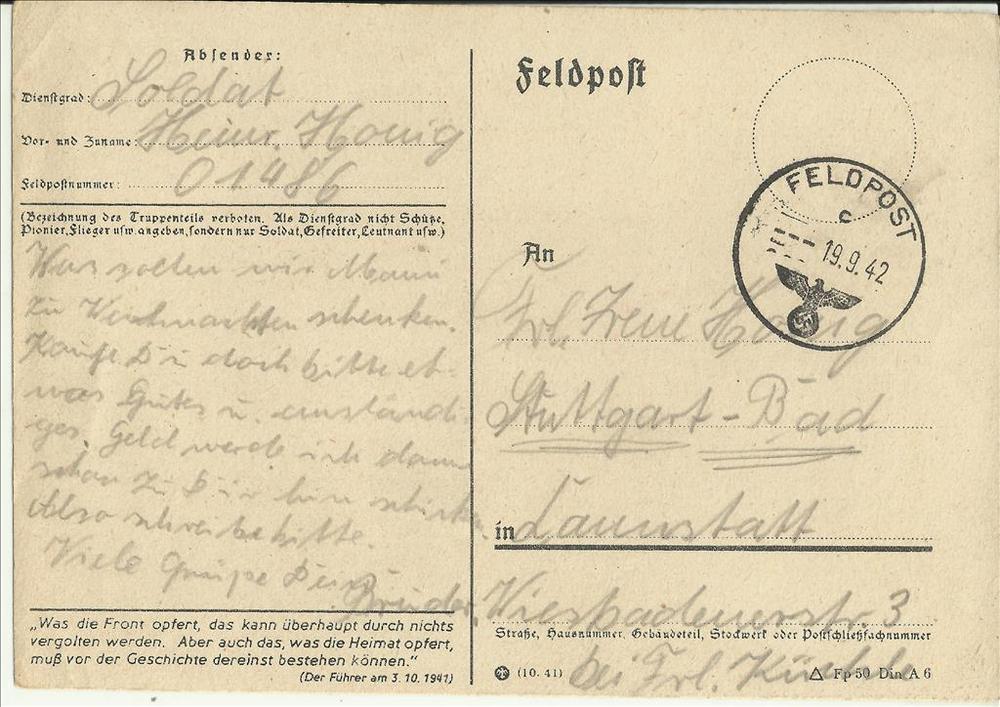 Absender:
Dienstgrad: Soldat
Vor- und Zuname: Heinr. Honig
Feldpostnummer: 01486
(Bezeichnung des Truppenteils verboten. Als Dienstgrad nicht Schütze,
Pionier, Flieger usw. angeben, sondern nur Soldat, Gefreiter, Leutnant usw.)
Was sollen wir Mama
zu Weihnachten schenken.
Kaufe Du doch bitte et-
was Gutes u. anständi-
ges. Geld werde ich dann
schon zu Dir hin schicken.
Also schreibe bitte.
Viele Grüße Dein
Bruder.
„Was die Front opfert, das kann überhaupt durch nichts
vergolten werden. Aber auch das, was die Heimat opfert,
muß vor der Geschichte dereinst bestehen können.“
(Der Führer am 3. 10. 1941)
Feldpost
FELDPOST
c
19.9.42
An
Frl. Irene Honig
Stuttgart - Bad
in Cannstatt
Wiesbadenerstr. 3
Straße, Hausnummer, Gebäudeteil, Stockwerk oder Postschließfachnummer
bei Frl.
(10. 41)
Fp 50 Din A 6